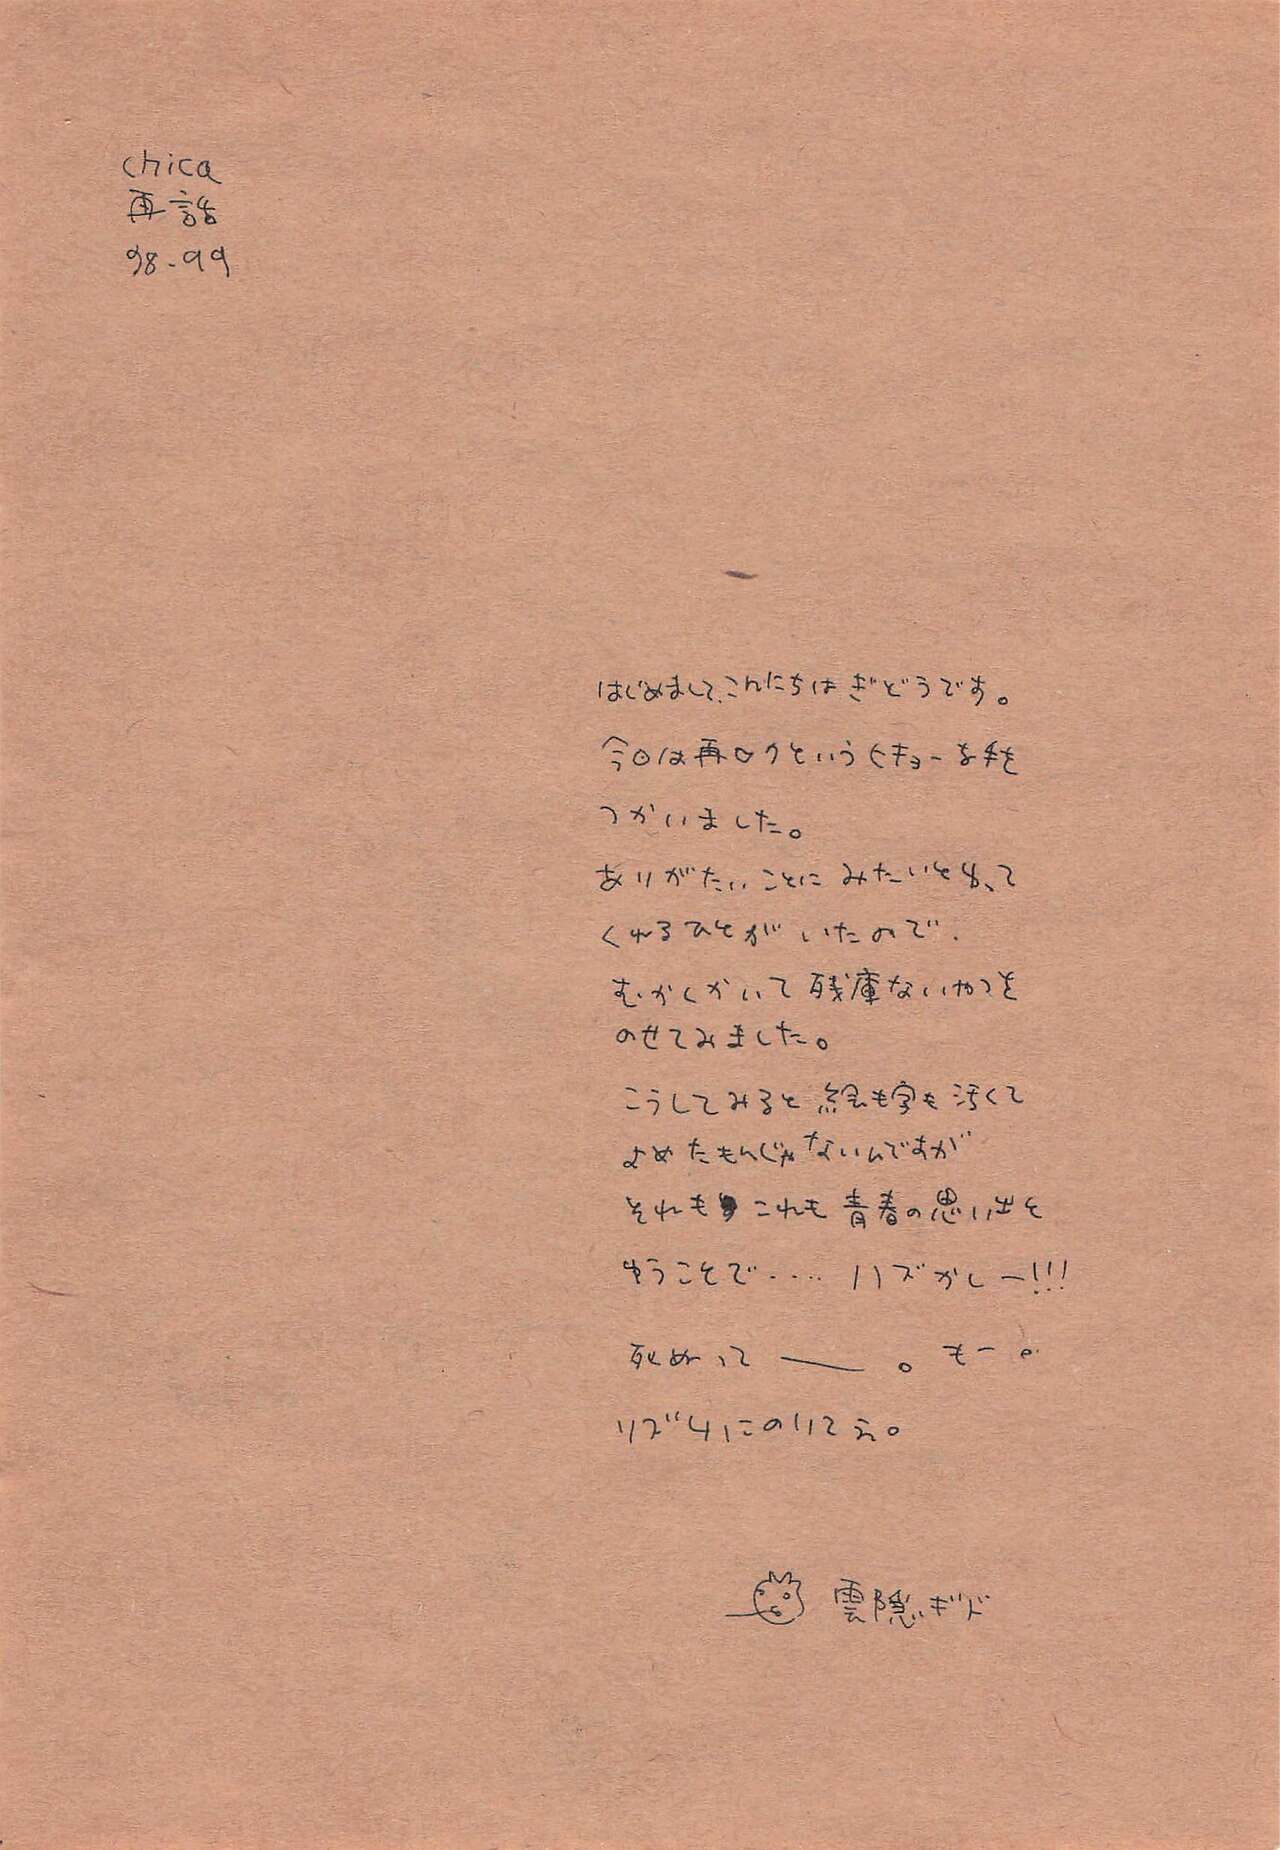 chica
再話
98-99
はじめまして、こんにちは ぎどうです。
今回は再ロクというヒキョーな手を
つかいました。
ありがたいことに みたいと言って
くれるひとが いたので、
むかしかいて 残庫ないやつを
のせてみました。
こうしてみると 絵も字も 汚くて
よめたもんじゃないんですが
それも これも 青春の思い出と
ゆうことで‥‥ ハズかしー!!!
死ぬって ー 。もー。
リズムにのりてえ。
雲隠ギド